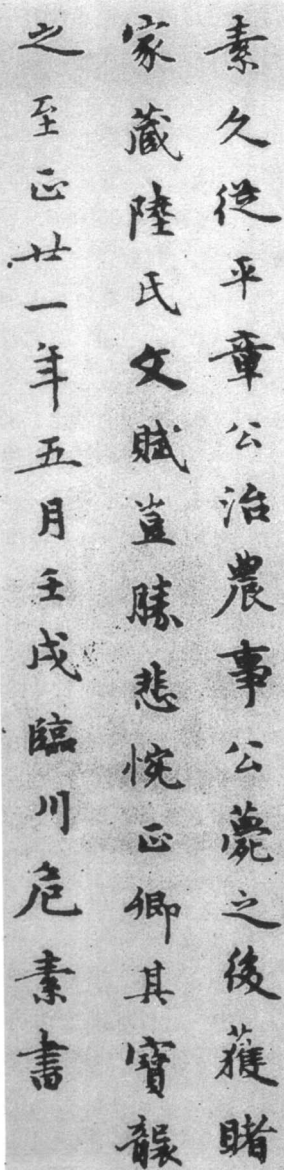 素久從平章公治農事公薨之後獲睹
家藏陸氏文賦豈勝悲惋正卿其寶襲
之至正廿一年五月壬戌臨川危素書